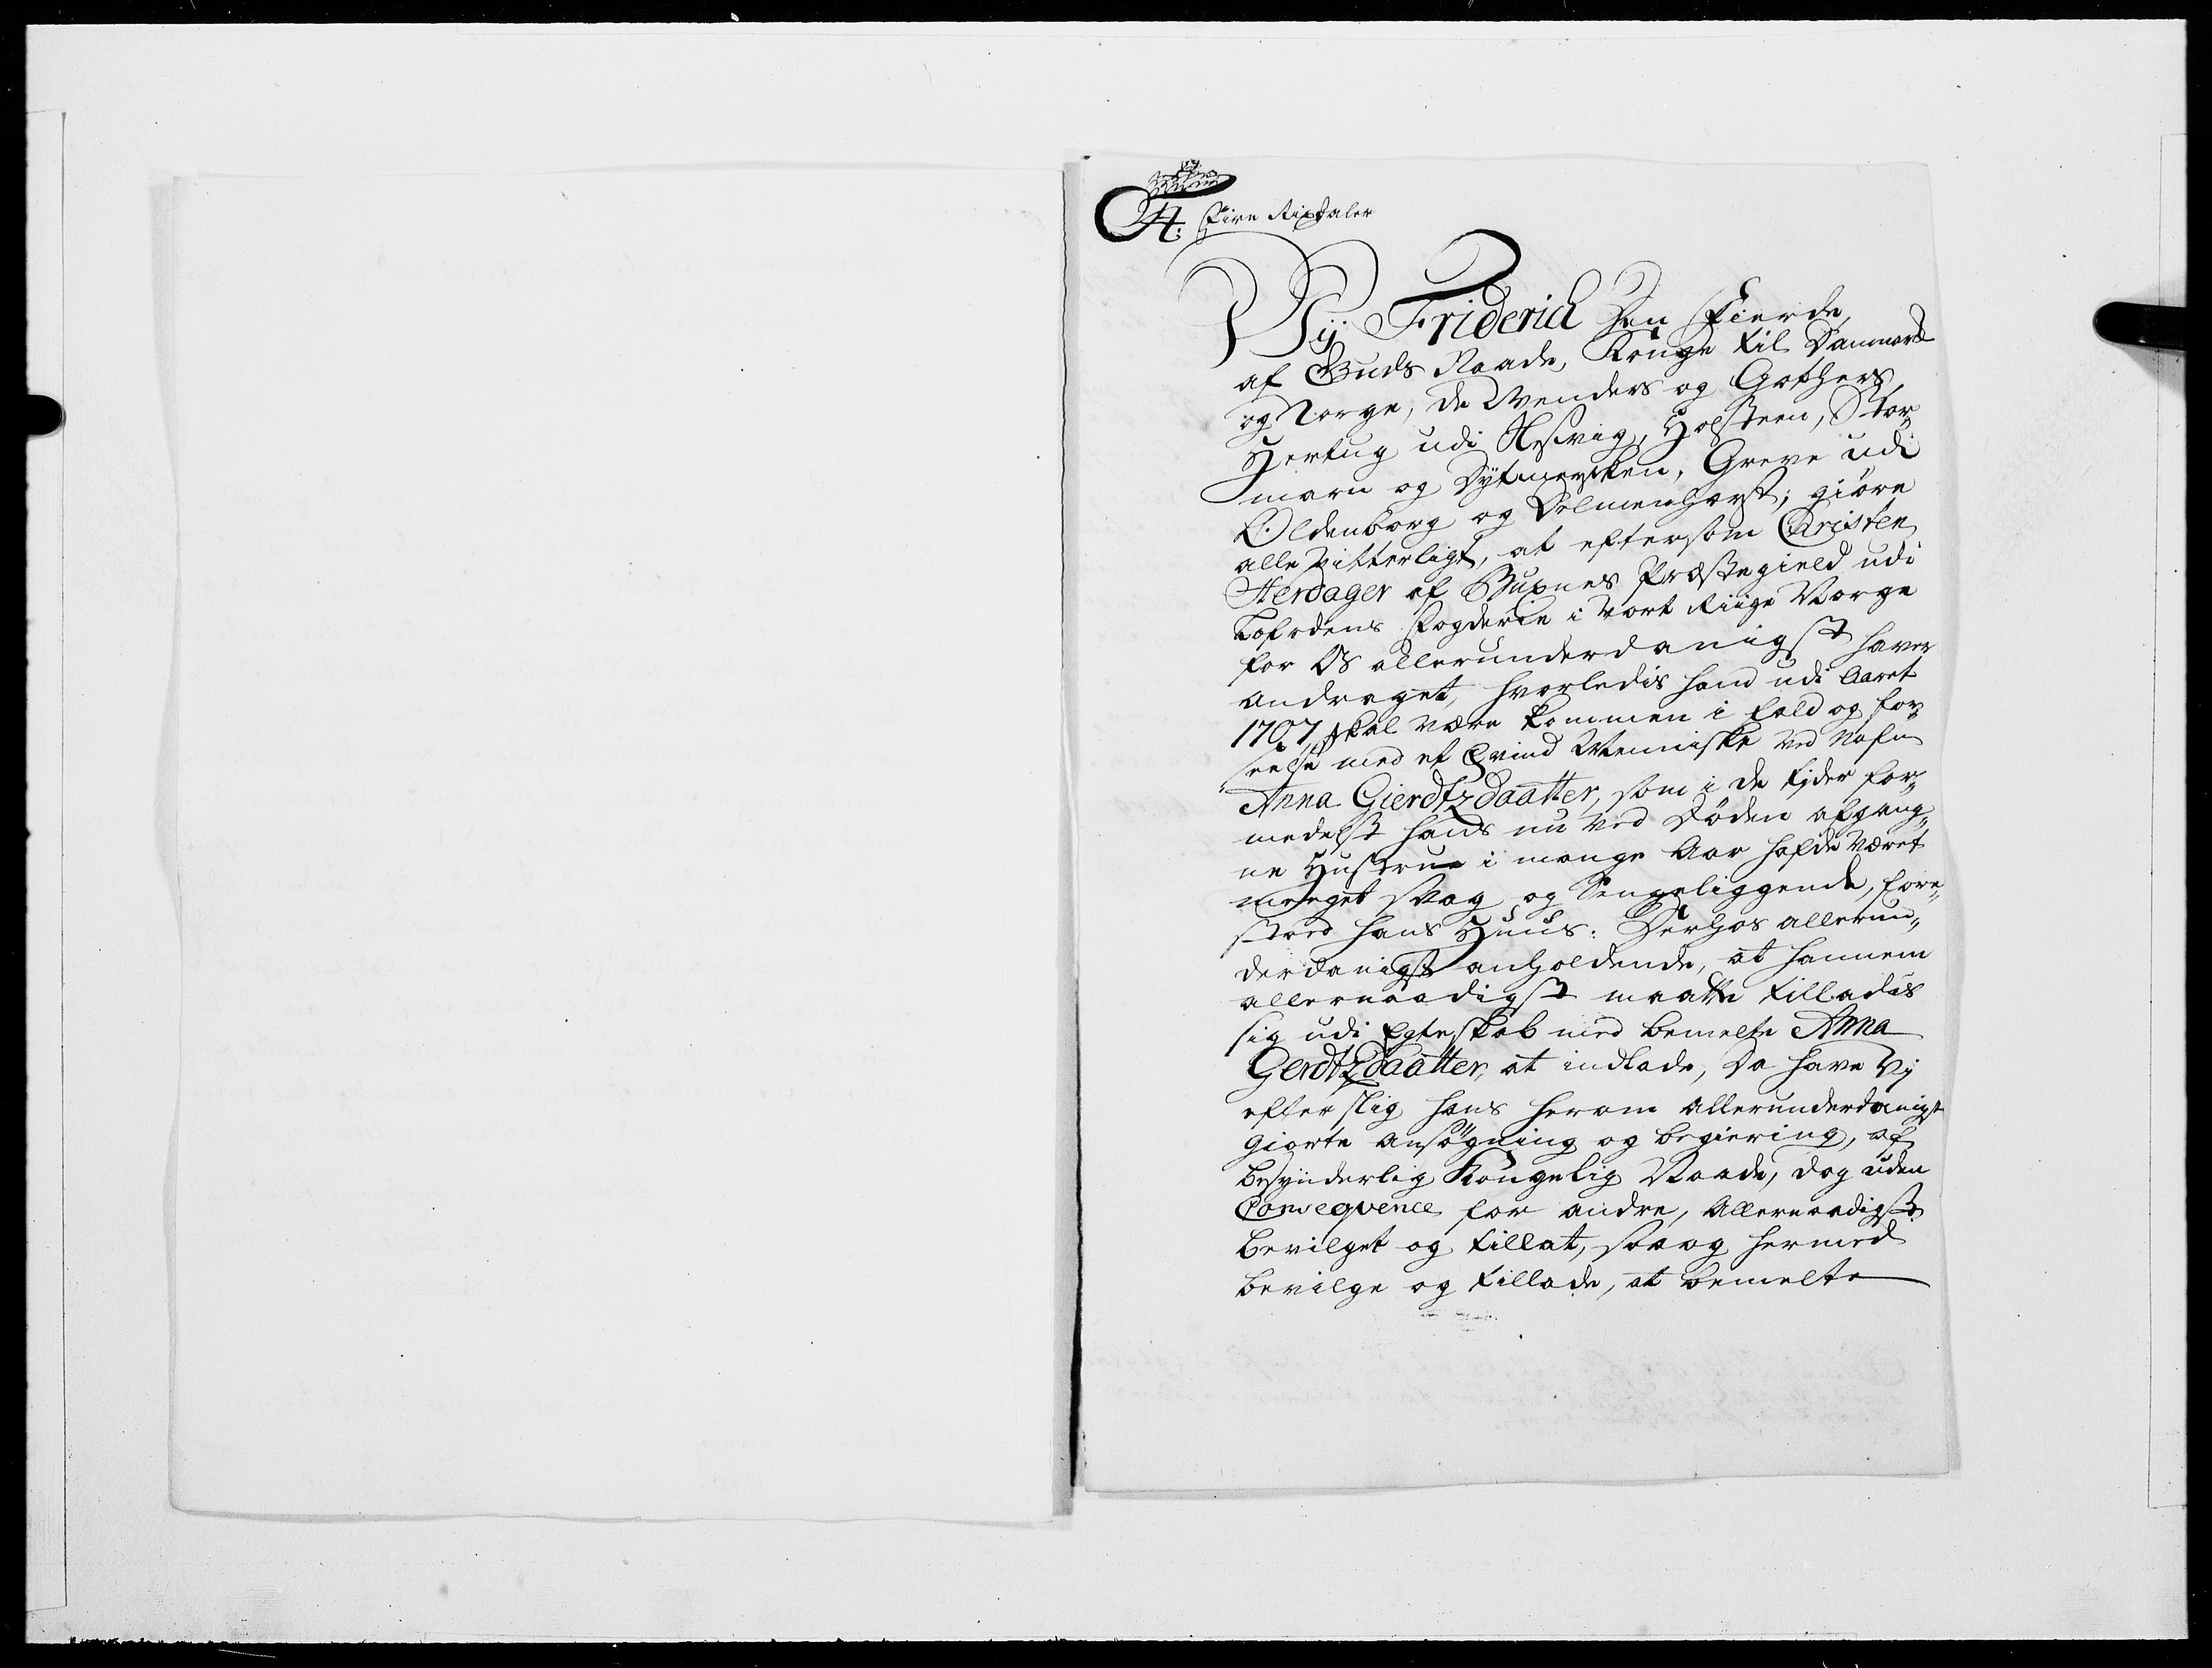 4. Fire Rixdaler
Wij Friderich den Fierde,
af Guds Naade, Konge til Danmark
og Norge, de Wenders og Gothers,
Hertug udi Slesvig, Holsteen, Stor„
marn og Dytmersken, Greve udi
Oldenborg og Delmenhorst; giøre
alle vitterligt, at eftersom Christen
Herdager af Buxnes Præstegield udi
Lofodens Fogderie i Vort Riige Norge
for Os allerunderdanigst haver
andraget, hvorledis hand udi Aaret
1707 skal være kommen i fald og for„
seelse med et Qvind Menniske ved Nafn
Anna Gierdtzdaatter, som i de tjder for„
medelst hans nu ved Døden afgang„
ne Hustrue i mange Aar hafde været
meeget svag og Sengeliggende, fore„
stoed hans Huus: Derhos allerun„
derdanigst anholdende, at hannem
allernaadigst maatte tilladis
sig udi Egteskab med bemelte Anna
Gerdtzdaatter, at indlade, Da have Vj
efter slig hans herom allerunderdanigst
giorte ansøgning og begiering, af
besynderlig Kongelig Naade, dog uden
Conseqvence for andre, Allernaadigst
bevilget og tillat, saa og hermed
bevilge og tillade, at bemelte